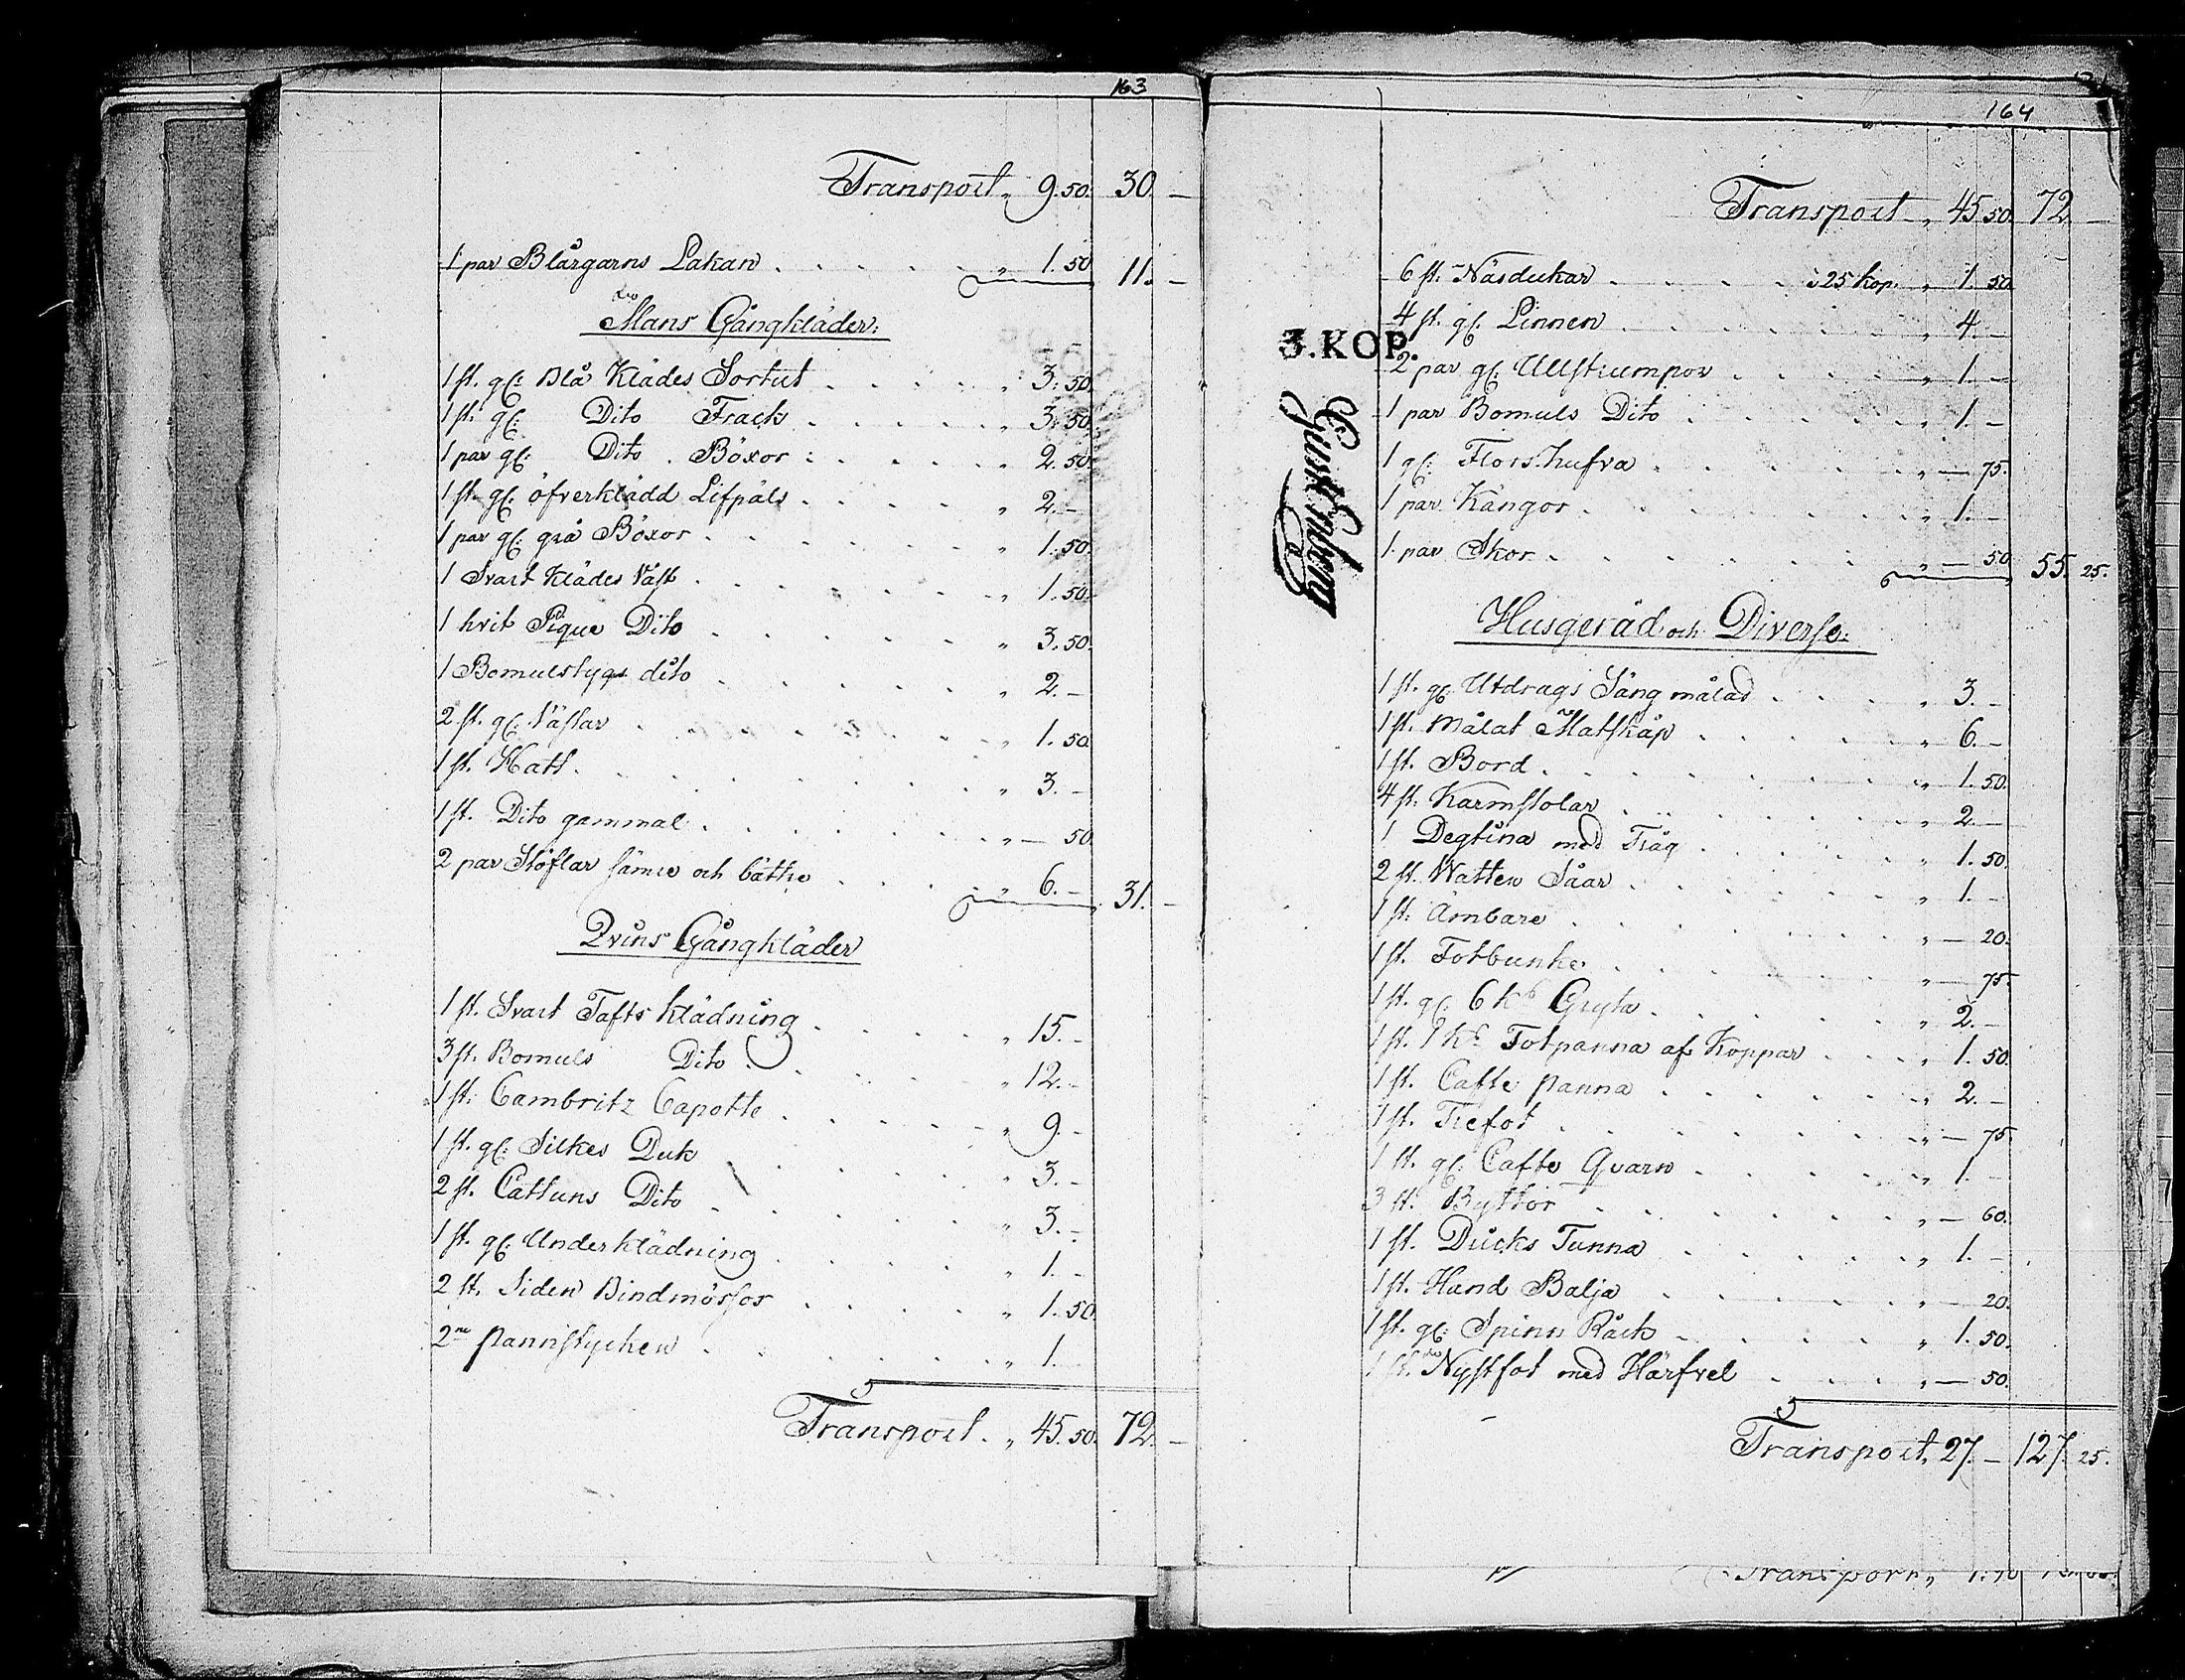 163
Transport „ 9.50. 30. —
1 par Blårgarns Lakan . . . „ 1.50 11. —
Mans Gångkläder:
1 st. gl: Blå Klädes Sortut . . . „ 3.50.
1 st. gl: Dito Frack . . . „ 3.50.
1 par gl: Dito Böxor . . . „ 2.50.
1 st. gl: öfverklädd Lifpäls . . . „ 2. —
1 par gl: grå Böxor . . . „ 1.50.
1 Svart Klädes Väst . . . „ 1.50.
1 hvit Pique Dito . . . „ 3.50.
1 Bomulstygs dito . . . „ 2. —
2 st. gl: Västar . . . „ 1.50
1 st. Hatt . . . „ 3. —
1 st. Dito gammal . . . „ — 50.
2 par Stöflar sämre och bättre . . . „ 6. — 31. —
Qvins Gångkläder
1 st. Svart Tafts Klädning . . . „ 15. —
3 st. Bomuls Dito . . . „ 12. —
1 st: Cambritz Capotte . . . „ 9. —
1 st. gl: Silkes Duk . . . „ 3. —
2 st. Cattuns Dito . . . „ 3. —
1 st. gl: Underklädning . . . „ 1. —
2 st. Siden Bindmössor . . . „ 1.50.
2ne pannstycken . . . „ 1. —
Transport . „ 45.50. 72. —
164
Transport „ 45 50. 72 —
6 st: Näsdukar . . . à 25 kop. „ 1. 50
4 st. gl. Linnen . . . „ 4. —
3. KOP.
2 par gl. Ullstrumpor . . . „ 1. —
1 par Bomuls Dito . . . „ 1. —
1 gl: Flors hufva . . . „ — 75.
1 par Kängor . . . „ 1. —
1 par Skor . . . „ — 50 55. 25.
Husgeråd och Diverse:
1 st. gl. Utdrags Säng målad . . . „ 3. —
1 st. Målat Matskåp . . . „ 6. —
1 st. Bord . . . „ 1.50.
4 st. Karmstolar . . . „ 2 —
1 Degtina med Tråg . . . „ 1.50.
2 st. Watten Såar . . . „ 1. —
1 st: Ämbare . . . „ — 20.
1 st. Fotbunke . . . „ — 75.
1 st. gl: 6 Ks Gryta . . . „ 2. —
1 st. 1 Ks Fotpanna af Koppar . . . „ 1. 50.
1 st. Caffe panna . . . „ 2. —
1 st. Trefot . . . „ — 75.
1 st. gl: Caffe Qvarn . . . „ 1. —
3 st. Byttor . . . „ — 60.
1 st. Dricks Tunna . . . „ 1. —
1 st. Hand Balja . . . „ — 20.
1 st. gl: Spinn Råck . . . „ 1.50.
1 st. Nystfot med Härfvel . . . „ — 50.
Transport „ 27. — 127. 25.
Transport „